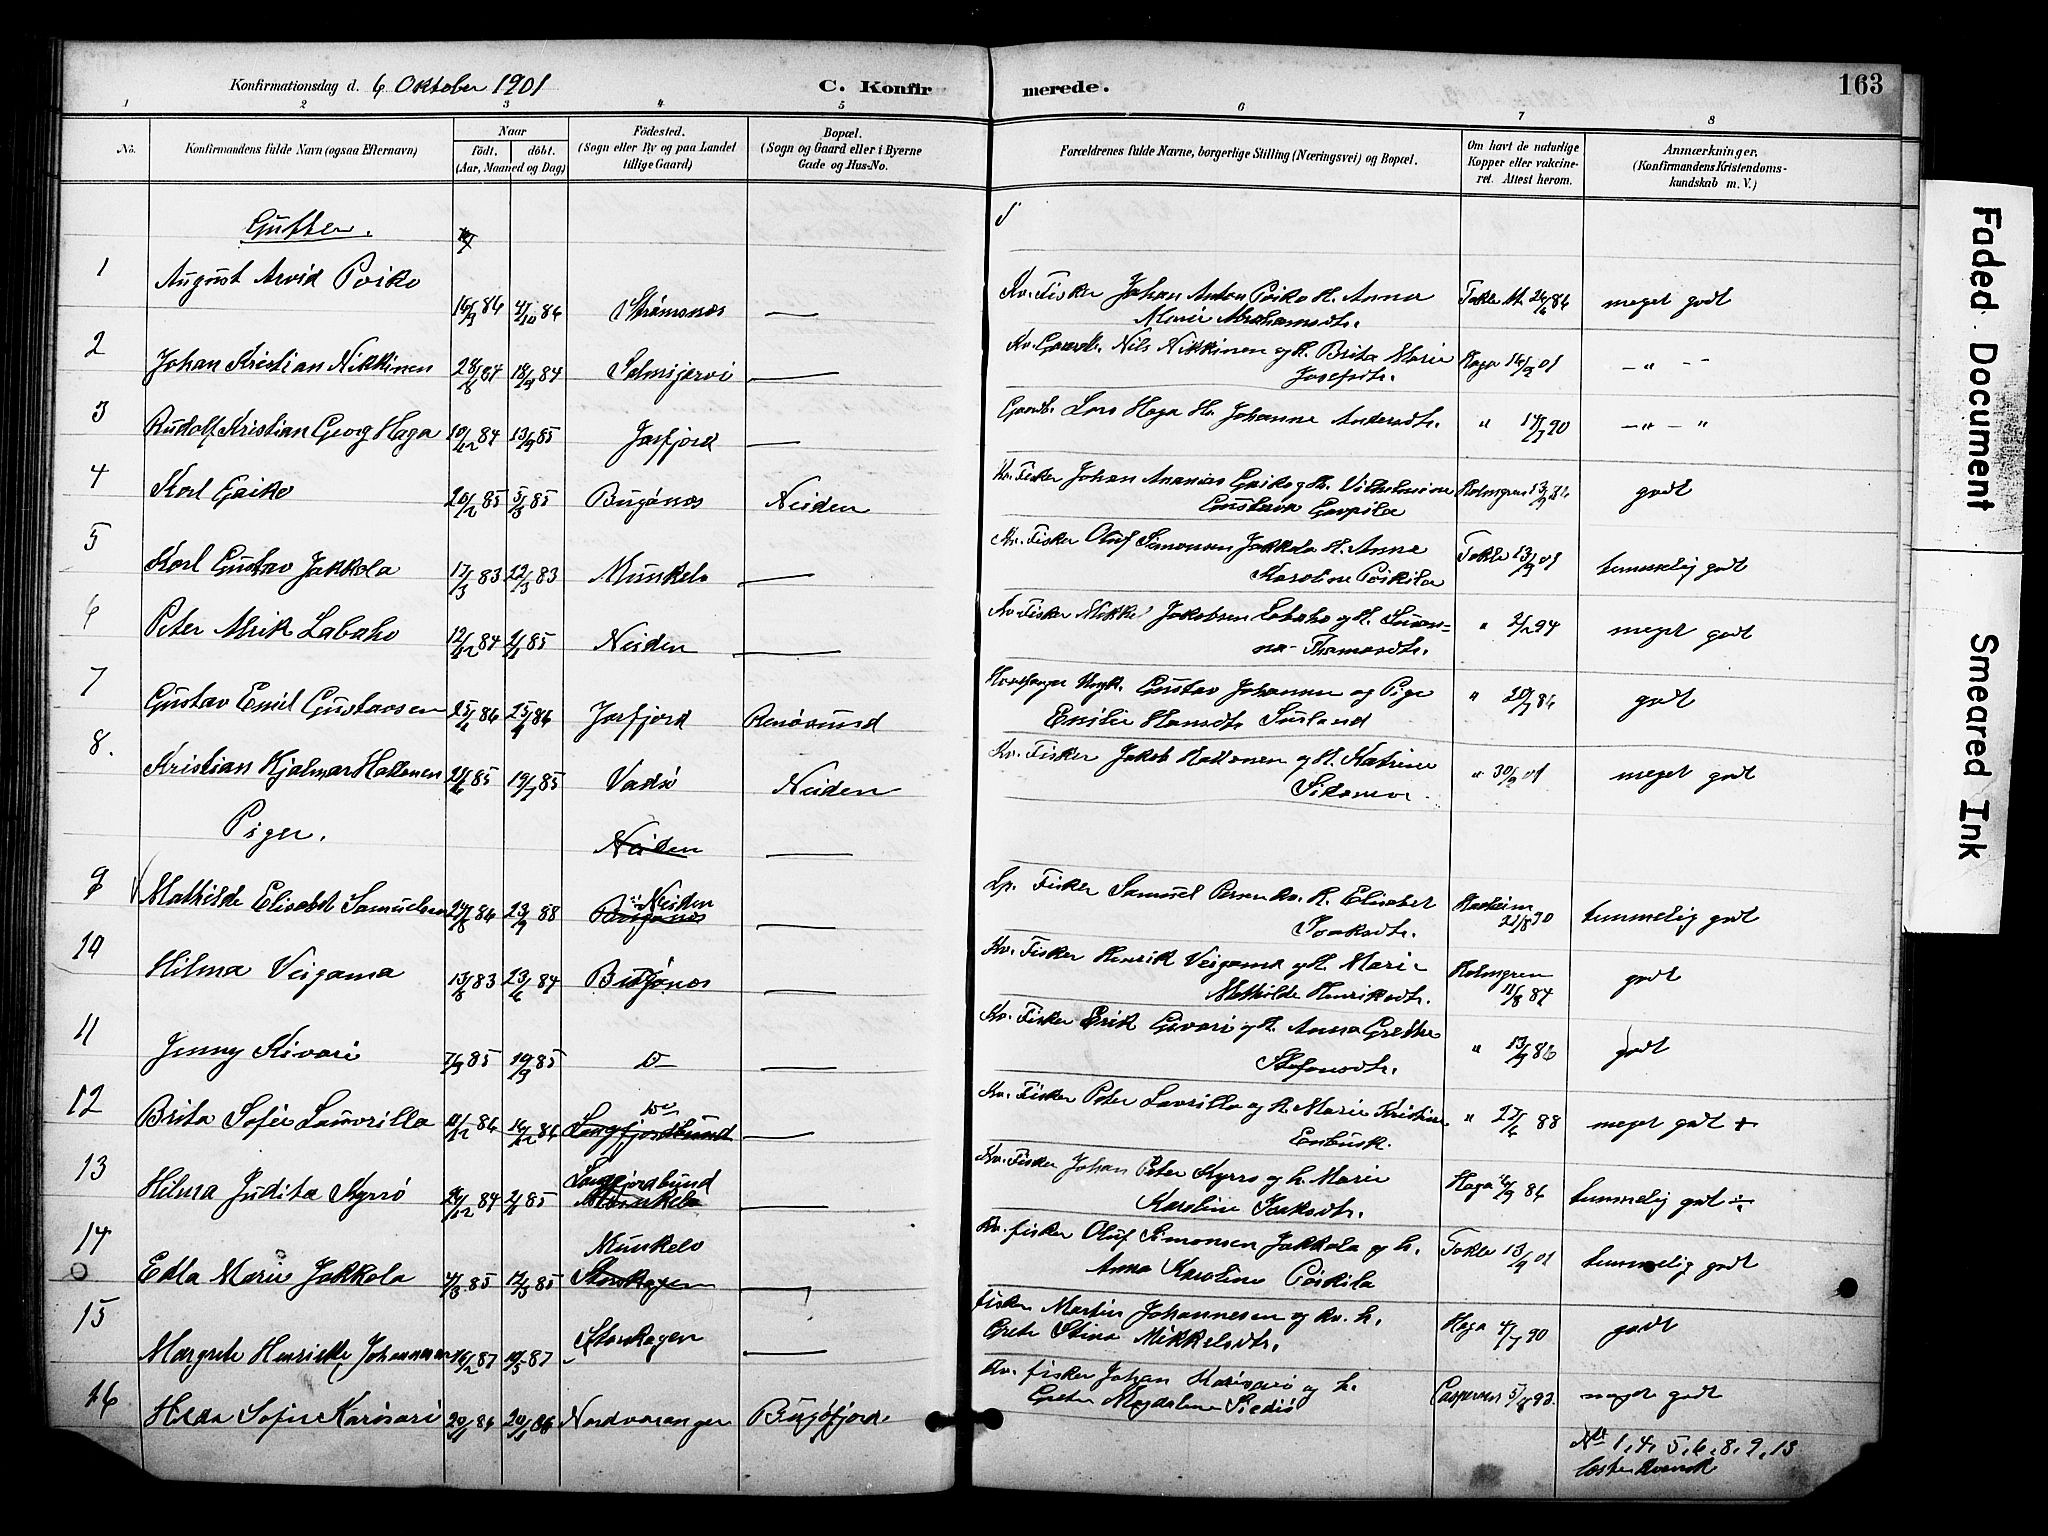 Konfirmationsdag d. 6 Oktober 1901
C. Konfirmerede.
163
1 2 3 4 5 6 7 8
No.
Konfirmandens fulde Navn (ogsaa Efternavn)
Naar
födt. döbt.
(Aar, Maaned og Dag)
Födested.
(Sogn eller By og paa Landet
tillige Gaard)
Bopæl.
(Sogn og Gaard eller i Byerne
Gade og Hus-No.
Forældrenes fulde Navne, borgerlige Stilling (Næringsvei) og Bopæl.
Om havt de naturlige
Kopper eller vakcine-
ret. Attest herom.
Anmærkninger,
(Konfirmandens Kristendoms-
kundskab m. V.)
Gutter.
1 August Arvid Poiko 16/9 86 4/10 86 Strømsnes — Kv. Fisker Johan Anton Poiko H. Anna
Marie Abrahamsdtr. Takle 86 meget godt
2 Johan Kristian Nikkinen 28/8 84 18/9 84 Salmijærvi — Kv. Gaardb. Nils Nikkinen og H. Brita Marie
Josefsdtr. Haga 14/9 01 — " —
3 Rudolf Kristian Georg Haga 10/12 84 13/9 85 Jarfjord — Gaardb. Lars Haga H. Johanne Andersdtr. " 17/7 90 — " — "
4 Karl Gaiko 20/2 85 5/3 85 Bugönes Neiden Kv. Fisker Johan Ananias Gaiko og H. Vilhelmine
Gustava Gavpila Holmgren 13/9 86 godt
5 Karl Gustav Jakkola 17/3 83 22/3 83 Munkelv — Kv. Fisker Oluf Simonsen Jakkola H. Anna
Karoline Poikila Takle 13/9 01 temmelig godt
6 Peter Mrik Labaho 12/12 84 2/1 85 Neiden — Kv. Fisker Mikkel Jakobsen Labaho og H. Susan-
na Thomasdtr. " 2/2 94 meget godt
7 Gustav Emil Gustavsen 25/4 86 25/4 86 Jarfjord Renøsund Gustav Johansen og Pige
Emilie Hansdtr. Susland " 20/7 86 godt
8. Kristian Hjalmar Hattonen 85 19/7 85 Vadsö Neiden Kv. Fisker Jakob Hattonen og H. Katrine
" 30/9 01 meget godt
Piger. Neiden —
9 Mathilde Elisabet Samuelsen 24/8 86 23/9 88 Neiden
Bugønes — Lp. Fisker Samuel Persen kv. H. Elisabet
Isaksdtr. 21/8 90 temmelig godt
10 Hilma Veigama 13/8 83 23/6 84 Bugönes — Kv. Fisker Henrik Veigama og H. Marie
Mathilde Henriksdtr. Holmgren
11/8 84 godt
11 Jenny Kivari 7/9 85 19/9 85 D — Kv. Fisker Erik Givari og H. Anna Grethe
Stefansdtr. " 13/9 86 godt
12 Brita Sofie Laurilla 11/12 86 16/12 86 Do
Langfjordbund — Kv. Fisker Peter Lavrilla og H. Marie Kristine
Enbusk. " 27/6 88 meget godt +
13 Hilma Judita Kyrrö 26/12 84 2/1 85 Langfjordbund
Munkelv — Kv. Fisker Johan Peter Kyrro og h. Marie
Karoline Isaksdtr. Haga 16/9 86 temmelig godt ÷
14 Edla Marie Jakkola 4/3 85 12/3 85 Munkelv
Storskogen — Kv. fisker Oluf Simonsen Jakkola og h.
Anna Karoline Poikila Takle 13/9 01 temmelig godt
15 Margrete Henrikke Johannesen 16/2 87 10/3 87 Storskogen — fisker Martin Johannesen og kv. h.
Grete Stina Mikkelsdtr. Haga 4/7 90 godt
16 Hilda Sofie Karisari 20/1 86 20/1 86 Nordvaranger Bugöfjord Kv. fisker Johan Karisari og h.
Grete Magdalene Siediö Caspersen 5/8 93 meget godt
No 1, 4, 5, 6, 8, 9, 13
læste kvensk
Faded Document
Smeared Ink